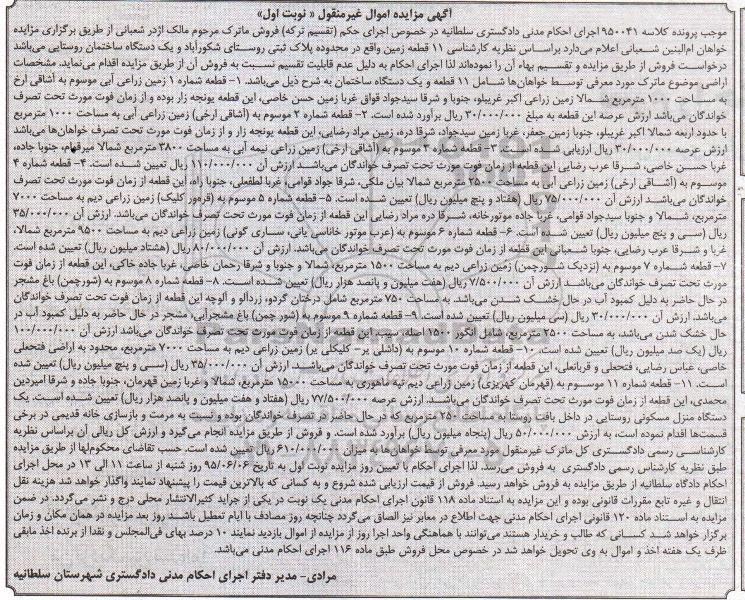 آگهی مزایده اموال غیرمنقول « نوبت اول»
موجب پرونده کلاسه ۹۵۰۰۴۱ اجرای احکام مدنی دادگستری سلطانیه در خصوص اجرای حکم (تقسیم ترکه) فروش ماترک مرحوم مالک اژدر شعبانی از طریق برگزاری مزایده
خواهان ام‌البنین شعبانی اعلام می‌دارد براساس نظریه کارشناسی ۱۱ قطعه زمین واقع در محدوده پلاک ثبتی روستای شکورآباد و یک دستگاه ساختمان روستایی می‌باشد
درخواست فروش از طریق مزایده و تقسیم بهاء آن را نموده‌اند لذا اجرای احکام به دلیل عدم قابلیت تقسیم نسبت به فروش آن از طریق مزایده اقدام می‌نماید. مشخصات
اراضی موضوع ماترک مورد معرفی توسط خواهان‌ها شامل ۱۱ قطعه و یک دستگاه ساختمان به شرح ذیل می‌باشد. ۱- قطعه شماره ۱ زمین زراعی آبی موسوم به آشاقی ارخ
به مساحت ۱۰۰۰ مترمربع شمالا زمین زراعی اکبر غریبلو، جنوبا و شرقا سیدجواد قواق غربا زمین حسن خاصی، این قطعه یونجه زار بوده و از زمان فوت مورث تحت تصرف
خواندگان می‌باشد ارزش عرصه این قطعه به مبلغ ۳۰/۰۰۰/۰۰۰ ریال برآورد شده است. ۲- قطعه شماره ۲ موسوم به (آشاقی ارخی) زمین زراعی آبی به مساحت ۱۰۰۰ مترمربع
با حدود اربعه شمالا اکبر غریبلو، جنوبا زمین جعفر، غربا زمین سیدجواد، شرقا دره، زمین مراد رضایی، این قطعه یونجه زار و از زمان فوت مورث تحت تصرف خواندگان‌ها می‌باشد
ارزش عرصه ۳۰/۰۰۰/۰۰۰ ریال ارزیابی شده است. ۳- قطعه شماره ۳ موسوم به (آشاقی ارخی) زمین زراعی نیمه آبی به مساحت ۳۸۰۰ مترمربع شمالا میرفهام، جنوبا جاده،
غربا حسن خاصی، شرقا عرب رضایی این قطعه از زمان فوت مورث تحت تصرف خواندگان می‌باشد ارزش آن ۱۱۰/۰۰۰/۰۰۰ ریال تعیین شده است. ۴- قطعه شماره ۴
موسوم به (آشاقی ارخی) زمین زراعی آبی به مساحت ۲۵۰۰ مترمربع شمالا بیان ملکی، شرقا جواد قوامی، غربا لطفعلی، جنوبا راه، این قطعه از زمان فوت مورث تحت تصرف
خواندگان می‌باشد ارزش آن ۷۵/۰۰۰/۰۰۰ ریال (هفتاد و پنج میلیون ریال) تعیین شده است. ۵- قطعه شماره ۵ موسوم به (قره‌ور کلیک) زمین زراعی دیم به مساحت ۷۰۰۰
مترمربع، شمالا و جنوبا سیدجواد قوامی، غربا جاده موتورخانه، شرقا دره مراد رضایی این قطعه از زمان فوت مورث تحت تصرف خواندگان می‌باشد. ارزش آن ۳۵/۰۰۰/۰۰۰
ریال (سی و پنج میلیون ریال) تعیین شده است. ۶- قطعه شماره ۶ موسوم به (عزیز موتور خاناسی یانی، ساری گونی) زمین زراعی دیم به مساحت ۹۵۰۰ مترمربع شمالا،
غربا و شرقا عرب رضایی، جنوبا شعبانی این قطعه از زمان فوت مورث تحت تصرف خواندگان می‌باشد. ارزش آن ۸۰/۰۰۰/۰۰۰ ریال (هشتاد میلیون ریال) تعیین شده است.
۷- قطعه شماره ۷ موسوم به (نزدیک شورچمن) زمین زراعی دیم به مساحت ۱۵۰۰ مترمربع، شمالا و جنوبا و شرقا رحمان خاصی، غربا جاده خاکی، این قطعه از زمان فوت
مورث تحت تصرف خواندگان می‌باشد ارزش آن ۷/۵۰۰/۰۰۰ ریال (هفت میلیون و پانصد هزار ریال) تعیین شده است. ۸- قطعه شماره ۸ موسوم به (شورچمن) باغ مشجر
در حال حاضر به دلیل کمبود آب در حال خشک شدن می‌باشد. به مساحت ۷۵۰ مترمربع شامل درختان گردو، زردآلو و آلوچه این قطعه از زمان فوت تحت تصرف خواندگان
می‌باشد. ارزش آن ۳۰/۰۰۰/۰۰۰ ریال (سی میلیون ریال) تعیین شده است. ۹- قطعه شماره ۹ موسوم به (شور چمن) باغ مشجرآبی، مشجر در حال حاضر به دلیل کمبود آب در
حال خشک شدن می‌باشد، به مساحت ۲۵۰۰ مترمربع، شامل انگور ۱۵۰۰ اصله است. این قطعه از زمان فوت مورث تحت تصرف خواندگان می‌باشد ارزش آن ۱۰۰/۰۰۰/۰۰۰
ریال (یک صد میلیون ریال) تعیین شده است. ۱۰- قطعه شماره ۱۰ موسوم به (داشلی یر- کلیکلی یر) زمین زراعی دیم به مساحت ۷۰۰۰ مترمربع، محدود به اراضی فتحعلی
خاصی، عباس رضایی، فتحعلی و قربانعلی، این قطعه از زمان فوت مورث تحت تصرف خواندگان می‌باشد. ارزش آن ۳۵/۰۰۰/۰۰۰ ریال (سی و پنج میلیون ریال) تعیین شده
است. ۱۱- قطعه شماره ۱۱ موسوم به (قهرمان کهریزی) زمین زراعی دیم تپه ماهوری به مساحت ۱۵۰۰۰ مترمربع، شمالا و غربا زمین قهرمان، جنوبا جاده و شرقا امیردین
محمدی، این قطعه از زمان فوت مورث تحت تصرف خواندگان می‌باشد. ارزش عرصه ۷۷/۵۰۰/۰۰۰ ریال (هفتاد و هفت میلیون و پانصد هزار ریال) تعیین شده است. یک
دستگاه منزل مسکونی روستایی در داخل بافت روستا به مساحت ۲۵۰ مترمربع که در حال حاضر در تصرف خواندگان بوده و نسبت به مرمت و بازسازی خانه قدیمی در برخی
قسمت‌ها اقدام نموده است، به ارزش ۵۰/۰۰۰/۰۰۰ ریال (پنجاه میلیون ریال) برآورد شده است. و فروش از طریق مزایده انجام می‌گیرد و ارزش کل ریالی آن براساس نظریه
کارشناسی رسمی دادگستری کل ماترک غیرمنقول مورد معرفی توسط خواهان‌ها به میزان ۶۱۰/۰۰۰/۰۰۰ ریال تعیین شده است. حسب تقاضای محکوم‌لها از طریق مزایده
طبق نظریه کارشناس رسمی دادگستری به فروش می‌رسد. لذا اجرای احکام با تعیین روز مزایده نوبت اول به تاریخ ۹۵/۰۶/۰۶ روز شنبه از ساعت ۱۱ الی ۱۳ در محل اجرای
احکام دادگاه سلطانیه از طریق مزایده به فروش خواهد رسید. فروش از قیمت ارزیابی شده شروع و به کسانی که بالاترین قیمت را پیشنهاد نمایند واگذار خواهد شد هزینه نقل
انتقال و غیره تابع مقررات قانونی بوده و این مزایده به استناد ماده ۱۱۸ قانون اجرای احکام مدنی یک نوبت در یکی از جراید کثیرالانتشار محلی درج و نشر می‌گردد. در ضمن
مزایده به استناد ماده ۱۲۰ قانونی اجرای احکام مدنی جهت اطلاع در معابر نیز الصاق می‌گردد چنانچه روز مصادف با ایام تعطیل باشد روز بعد مزایده در همان مکان و زمان
برگزار خواهد شد کسانی که طالب و خریدار هستند می‌توانند با هماهنگی واحد اجرا روز از مزایده از اموال بازدید نمایند ۱۰ درصد بهای فی‌المجلس و نقدا از برنده اخذ مابقی
ظرف یک هفته اخذ و اموال به وی تحویل خواهد شد در خصوص محل فروش طبق ماده ۱۱۶ اجرای احکام مدنی می‌باشد.
مرادی- مدیر دفتر اجرای احکام مدنی دادگستری شهرستان سلطانیه